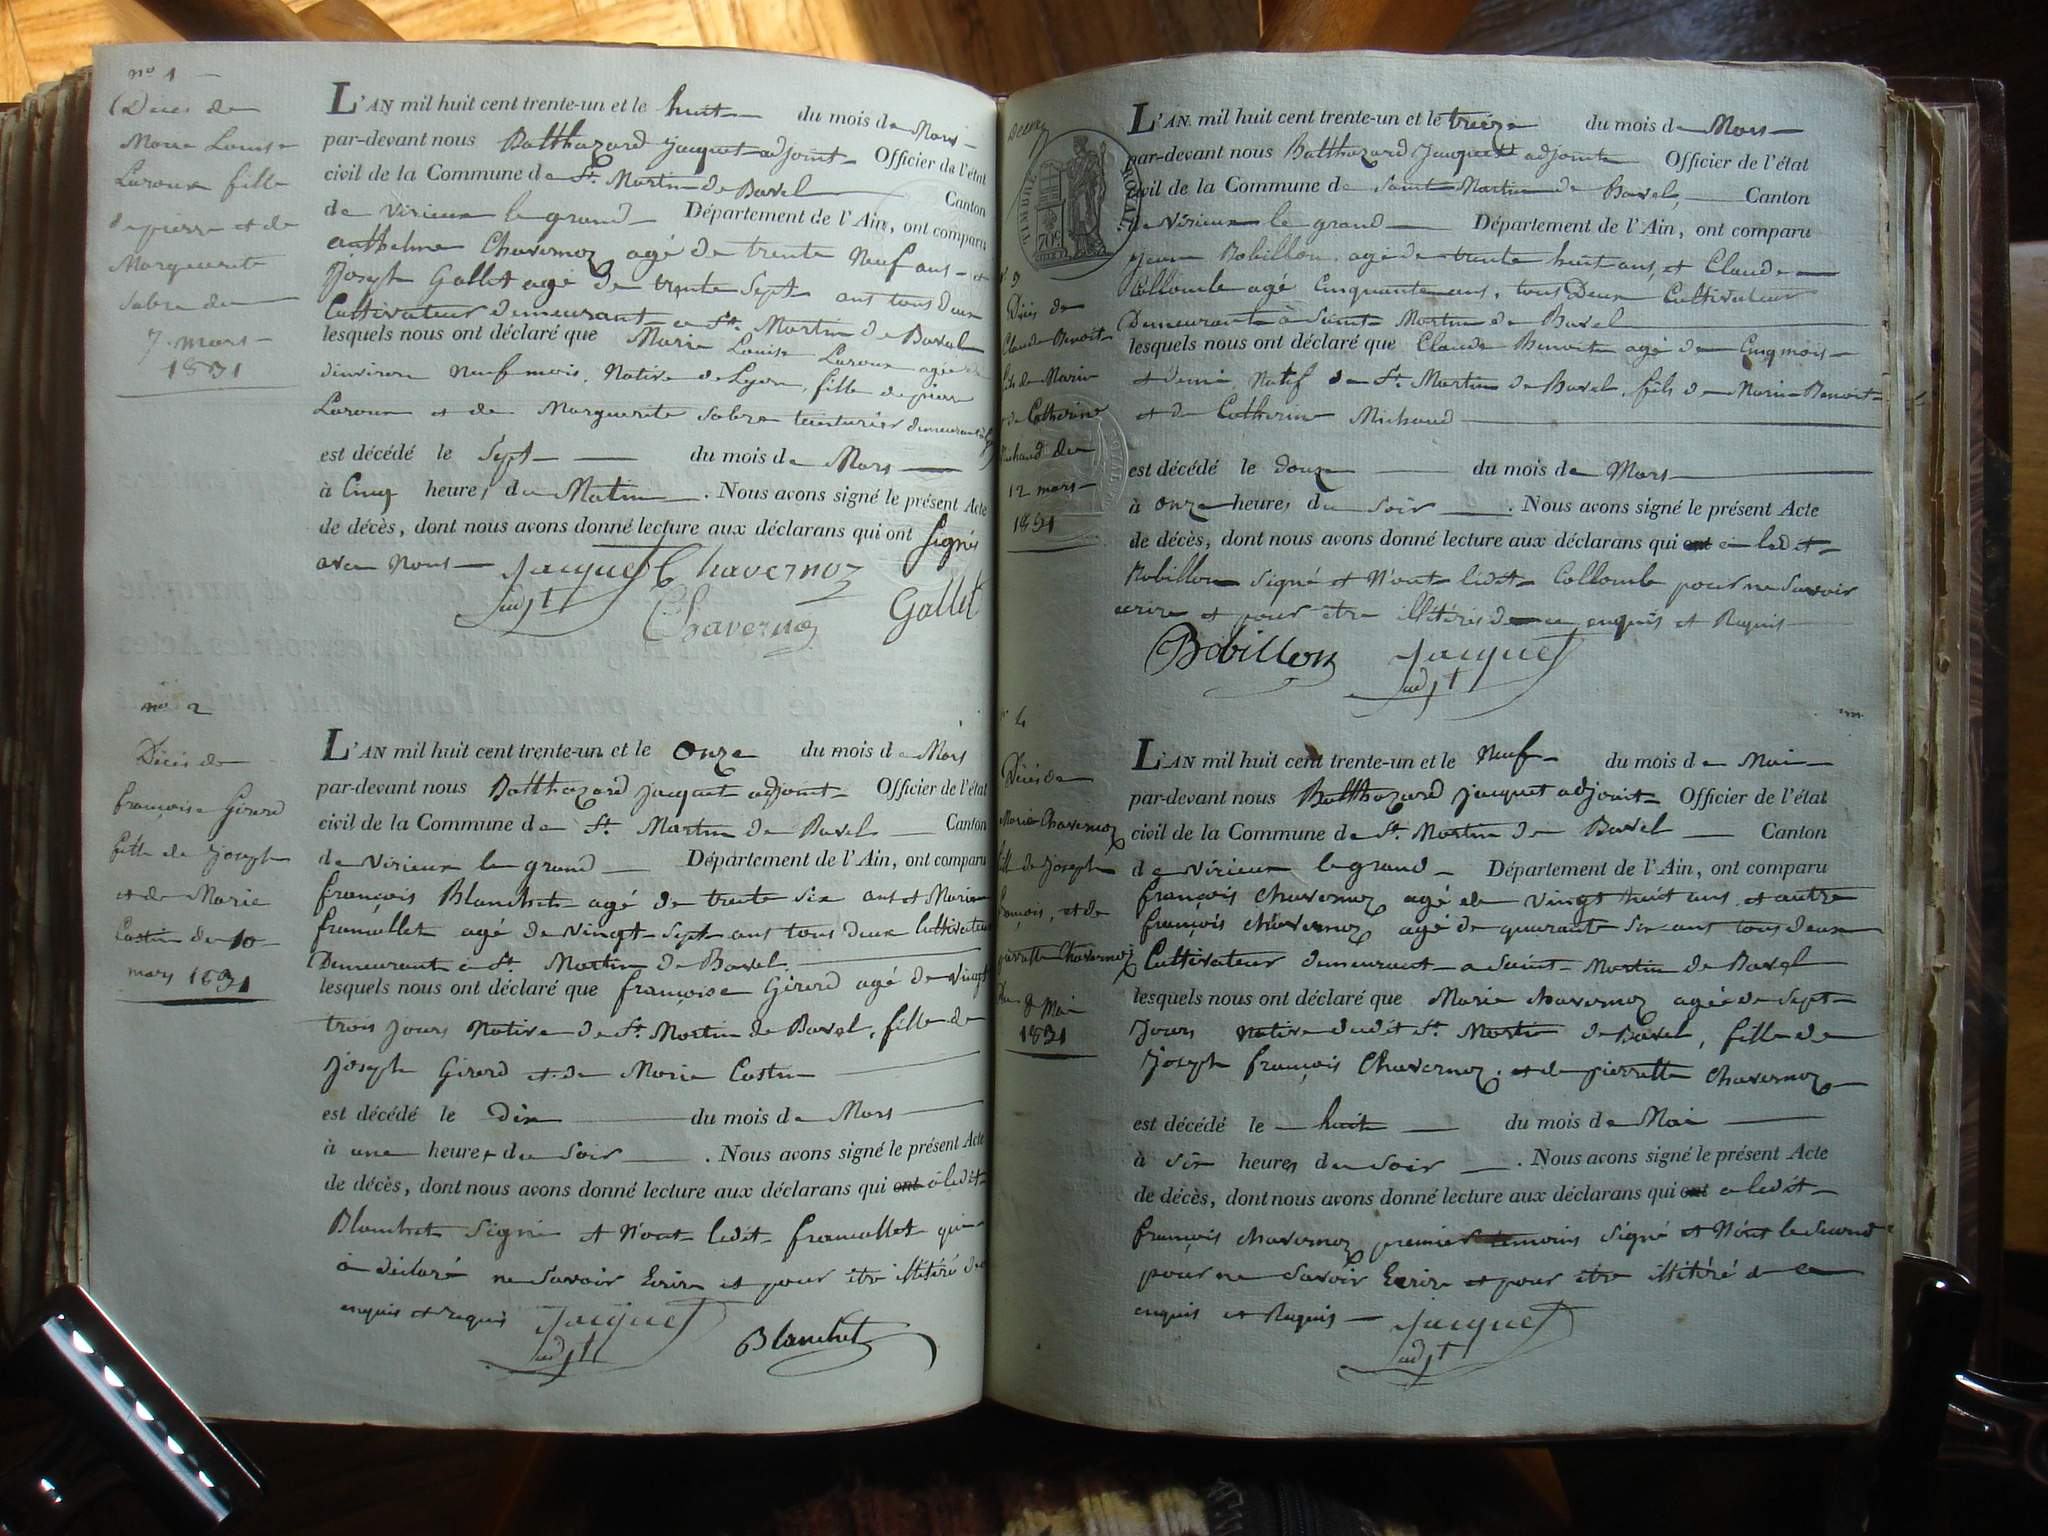 n° 1
Décès de
Marie Louise
Laroux fille
de pierre et de
Marguerite
Sabre du
7 mars
1831
L'AN mil huit cent trente-un et le huit du mois de Mars
par-devant nous Balthazard jacquet adjoint Officier de l'état
civil de la Commune de St. Martin de Bavel Canton
de virieux le grand Département de l'Ain, ont comparu
anthelme Chavernoz agé de trente Neuf ans et
Joseph Gallet agé de trente Sept ans tous deux
Cultivateur demeurant a St. Martin de Bavel
lesquels nous ont déclaré que Marie Louise Laroux agée de
d'environ Neuf mois, Native de Lyon, fille de pierre
Laroux et de Marguerite Sabre teinturier demeurant à
est décédé le Sept du mois de Mars
à Cinq heures du Matin. Nous avons signé le présent Acte
de décès, dont nous avons donné lecture aux déclarans qui ont signés
avec Nous Jacquet Chavernoz
adjt Chavernoz Gallet
n° 2
Décès de
françoise Girerd
fille de joseph
et de Marie
Costin du 10
mars 1831
L'AN mil huit cent trente-un et le onze du mois de Mars
par-devant nous Balthazard jacquet adjoint Officier de l'état
civil de la Commune de St. Martin de Bavel Canton
de virieux le grand Département de l'Ain, ont comparu
françois Blanchet agé de trente six ans et Marin
francallet agé de vingt Sept ans tous deux Cultivateur
Demeurant à St. Martin de Bavel
lesquels nous ont déclaré que françoise Girerd agé de vingt
trois jours Native de St. Martin de Bavel, fille de
joseph Girerd et de Marie Costin
est décédé le Dix du mois de Mars
à une heures du Soir. Nous avons signé le présent Acte
de décès, dont nous avons donné lecture aux déclarans qui ont a ledit
Blanchet Signé et N'ont ledit francallet qui
a déclaré ne Savoir Ecrire et pour être illitéré de
enquis et requis Jacquet
adjt Blanchet
TIMBRE ROYAL
70c
n° 3
Décès de
Claude Benoit
fils de Marin
et de Catherine
Michaud du
12 mars
1831
L'AN mil huit cent trente-un et le treize du mois de Mars
par-devant nous Balthazard Jacquet adjoint Officier de l'état
civil de la Commune de Saint Martin de Bavel, Canton
de virieux le grand Département de l'Ain, ont comparu
Bobillon agé de trente huit ans, et Claude
Collomb agé Cinquante ans, tous Deux Cultivateur
Demeurant à Saint Martin de Bavel
lesquels nous ont déclaré que Claude Benoit agé de Cinq mois
et demi Natif de St. Martin de Bavel, fils de Marin Benoit
et de Catherine Michaud
est décédé le douze du mois de Mars
à onze heures du Soir. Nous avons signé le présent Acte
de décès, dont nous avons donné lecture aux déclarans qui ont a ledit
Bobillon Signé et N'ont ledit Collomb pour ne Savoir
ecrire et pour être illitérés de ce enquis et Requis
Bobillon Jacquet
adjt
n° 4
Décès de
Marie Chavernoz
fille de joseph
françois, et de
pierrette Chavernoz
du 8 Mai
1831
L'AN mil huit cent trente-un et le Neuf du mois de Mai
par-devant nous Balthazard jacquet adjoint Officier de l'état
civil de la Commune de St. Martin de Bavel Canton
de virieux le grand Département de l'Ain, ont comparu
françois chavernoz agé de vingt huit ans, et autre
françois chavernoz agé de quarante Six ans tous deux
Cultivateur demeurant a Saint Martin de Bavel
lesquels nous ont déclaré que Marie chavernoz agée de Sept
jours native dudit St. Martin de Bavel, fille de
joseph françois Chavernoz, et de pierrette Chavernoz
est décédé le huit du mois de Mai
à Six heures du Soir. Nous avons signé le présent Acte
de décès, dont nous avons donné lecture aux déclarans qui ont a ledit
françois chavernoz premier témoins signé et N'ont le second
pour ne Savoir Ecrire et pour être illitéré de ce
enquis et Requis Jacquet
adjt